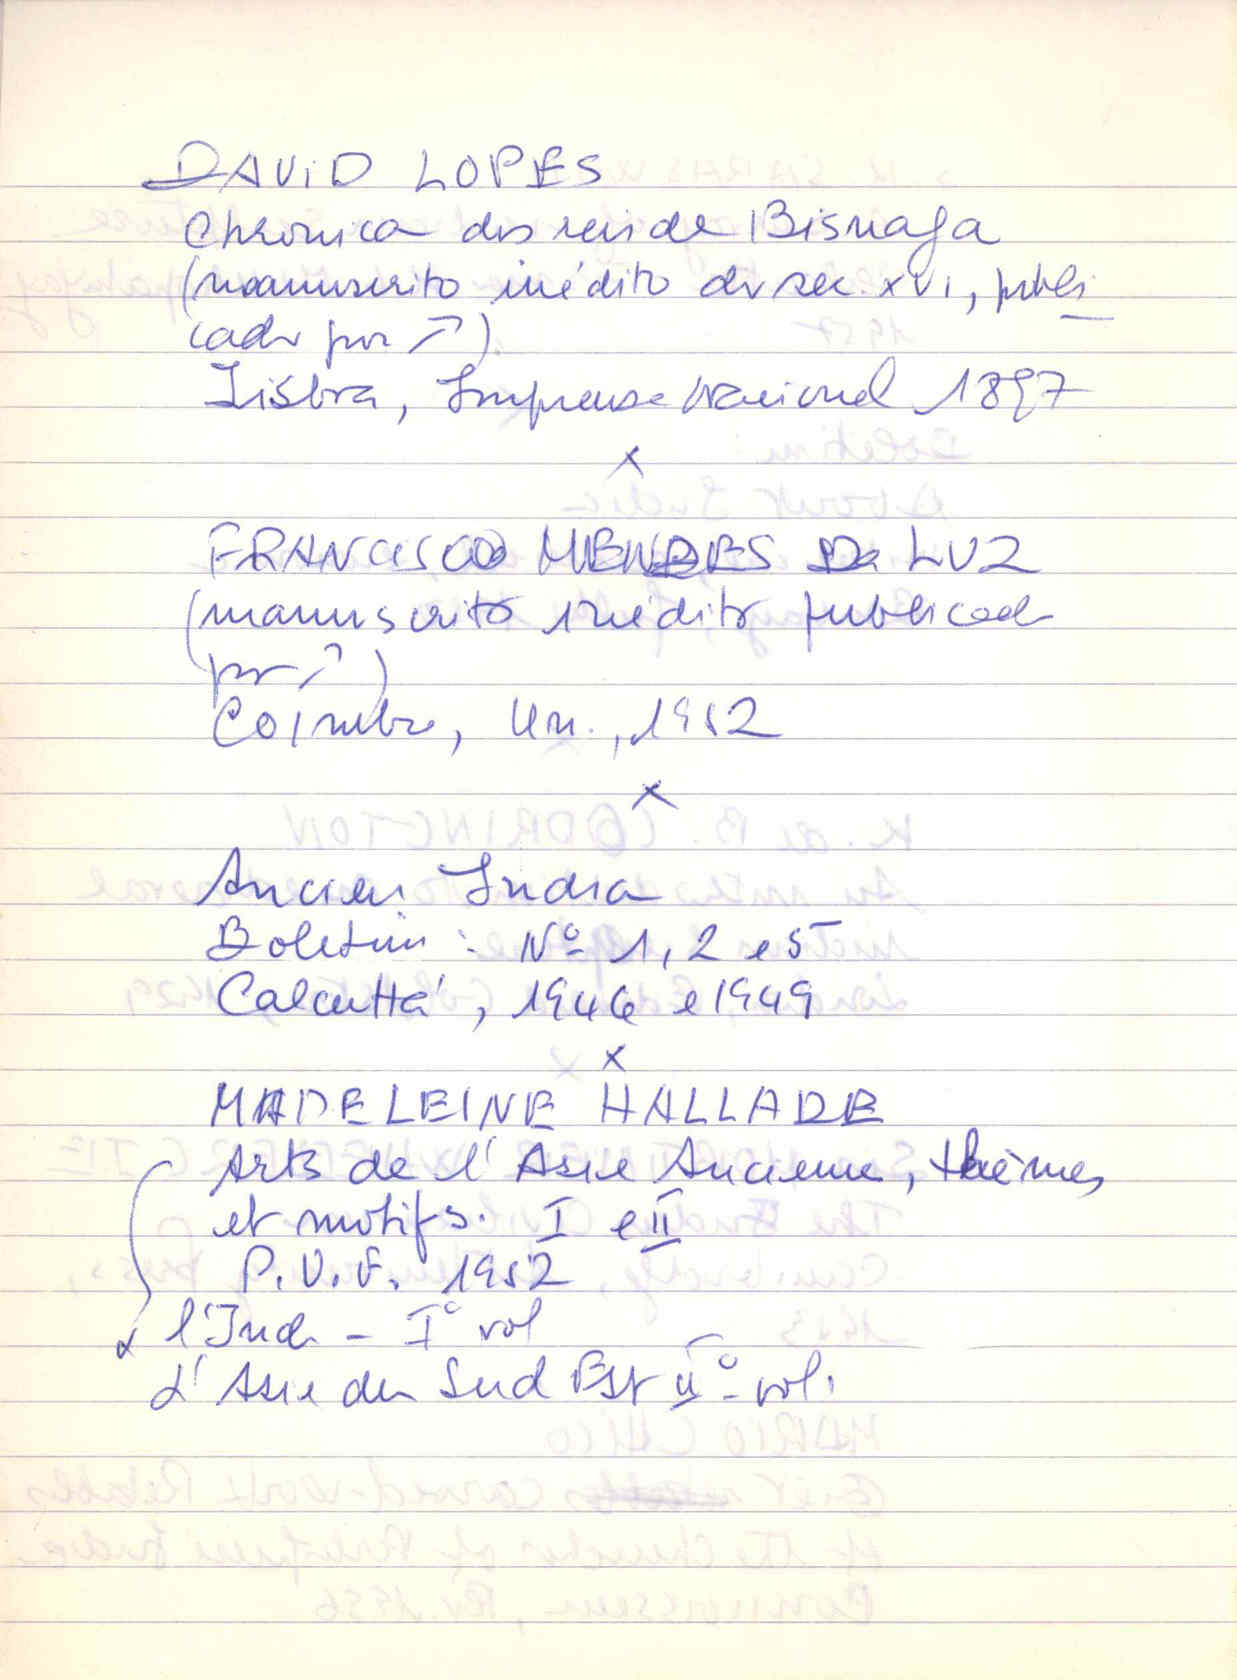 DAViD LOPES
Chronica dos reis de Bisnaga
(manuscrito inédito do sec. XVI, publi
cado por ↗)
Lisboa, Imprensa Nacional 1897
x
FRANCISCO MENDES Da LUZ
(manuscrito inédito publicado
por ↗)
Coimbra, Un., 1952
x
Ancien India
Boletim : Nº 1, 2 e 5
Calcuttá, 1946 e 1949
x
MADELEINE HALLADE
Arts de l'Asie Ancienne, thèmes
et motifs. I e II
P.U.F. 1952
x l'Inde - Iº vol
L'Asie du Sud Est IIº vol.